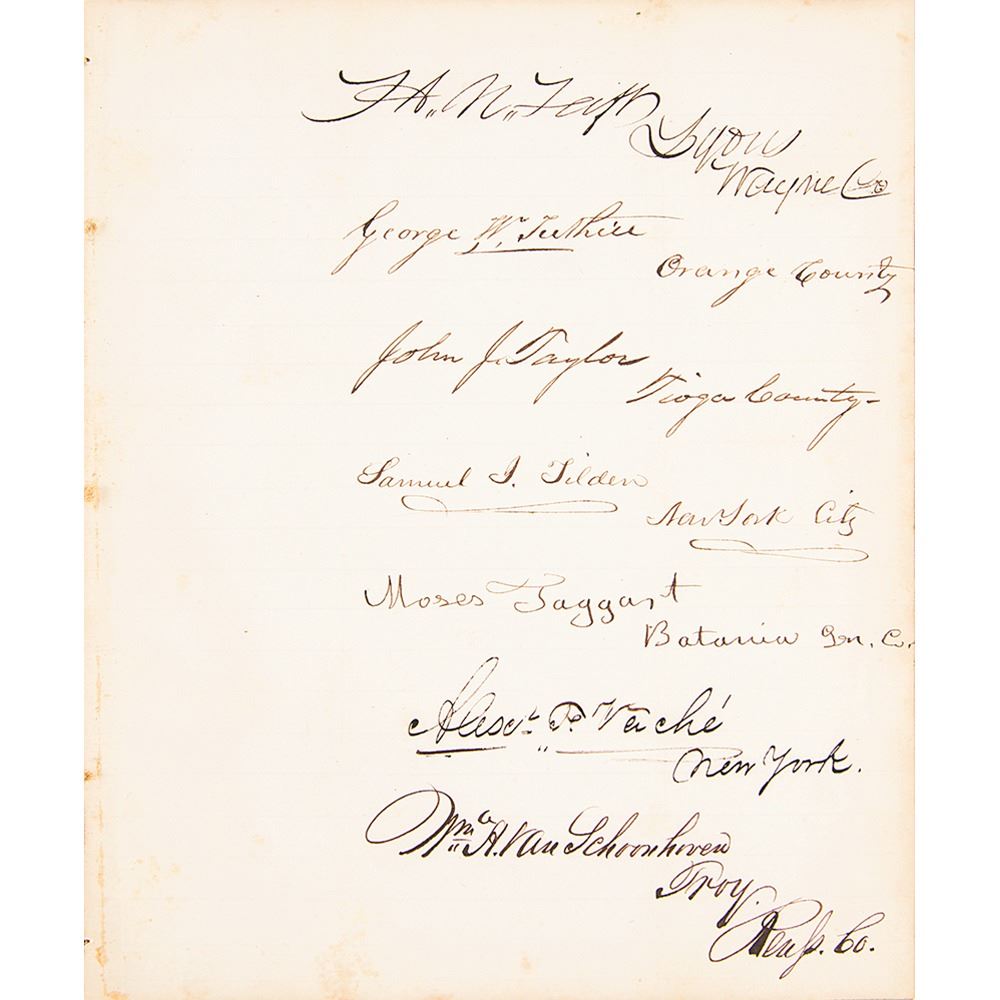 H. N. Taft
Lyons
Wayne Co
George W. Tuthill
Orange County
John J. Taylor
Tioga County-
Samuel J. Tilden
New York City
Moses Taggart
Batavia Gen. Co.
Alexr. F. Vaché
New York.
Wm. H. Van Schoonhoven
Troy.
Renss. Co.